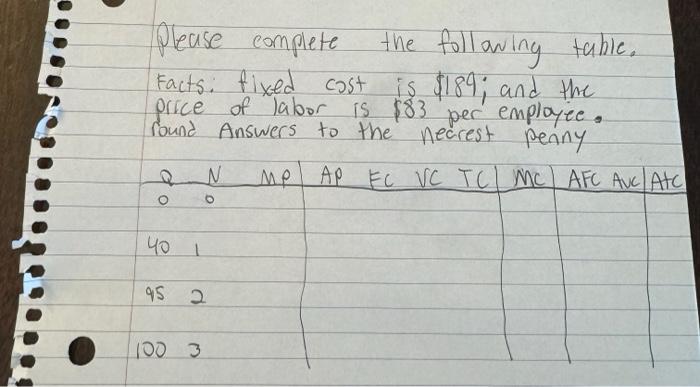 Please complete the following table.
Facts: fixed cost is $189; and the
price of labor is $83 per employee.
round Answers to the nearest penny
Q N MP AP FC VC TC MC AFC AVC AtC
0 0
40 1
95 2
100 3